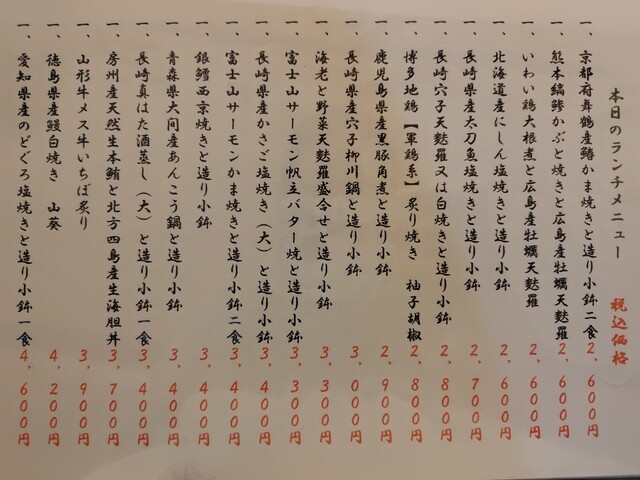 本日のランチメニュー 税込価格
一、京都府舞鶴産鰆かま焼きと造り小鉢二食 2,600円
一、熊本縞鯵かぶと焼きと広島産牡蠣天麩羅 2,600円
一、いわい鶏大根煮と広島産牡蠣天麩羅 2,600円
一、北海道産にしん塩焼きと造り小鉢 2,600円
一、長崎県産太刀魚塩焼きと造り小鉢 2,700円
一、長崎穴子天麩羅又は白焼きと造り小鉢 2,800円
一、博多地鶏【軍鶏系】炙り焼き 柚子胡椒 2,800円
一、鹿児島県産黒豚角煮と造り小鉢 2,900円
一、長崎県産穴子柳川鍋と造り小鉢 3,000円
一、海老と野菜天麩羅盛合せと造り小鉢 3,300円
一、富士山サーモン帆立バター焼と造り小鉢 3,300円
一、長崎県産かさご塩焼き(大)と造り小鉢 3,400円
一、富士山サーモンかま焼きと造り小鉢二食 3,400円
一、銀鱈西京焼きと造り小鉢 3,400円
一、青森県大間産あんこう鍋と造り小鉢 3,400円
一、長崎真はた酒蒸し(大)と造り小鉢一食 3,400円
一、房州産天然生本鮪と北方四島産生海胆丼 3,700円
一、山形牛メス牛いちぼ炙り 3,900円
一、徳島県産鰻白焼き 山葵 4,200円
一、愛知県産のどぐろ塩焼きと造り小鉢一食 4,600円